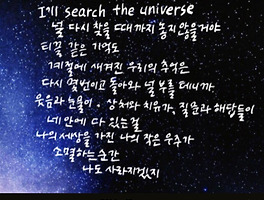 I'll search the universe
널 다시 찾을 때까지 놓지 않을거야
티끌 같은 기억도
계절에 새겨진 우리의 추억은
다시 몇번이고 돌아와 널 부를 테니까
웃음과 눈물이. 상처와 치유가, 질문과 해답들이
네 안에 다 있는걸
나의 세상을 가진 나의 작은 우주가
소멸하는 순간
나도 사라지겠지